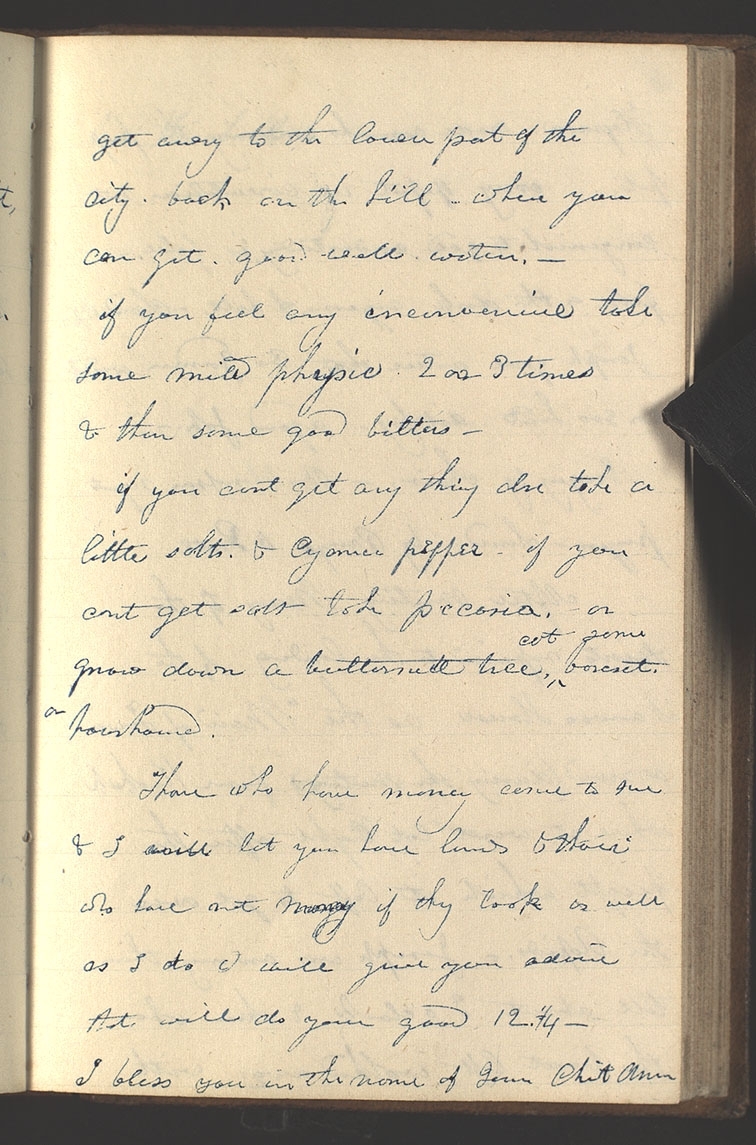 get away to the lower part of the
city. back on the hill - where you
can get. good well. water. —
if you feel any inconvenience take
some mild physic. 2 or 3 times
& then some good bitters —
if you cant get any thing else take a
little salts. & Cyanne pepper - if you
cant get salt take pecosia, - or
eat some
gnaw down a butternut tree, ^ boreset.
or
hourhound.
Those who have money come to me
& I will let you have lands & those
who have not money if thy look as well
as I do I will give you advice
tht will do you good 12.1/4 —
I bless you in the name of Jesus Christ Amen